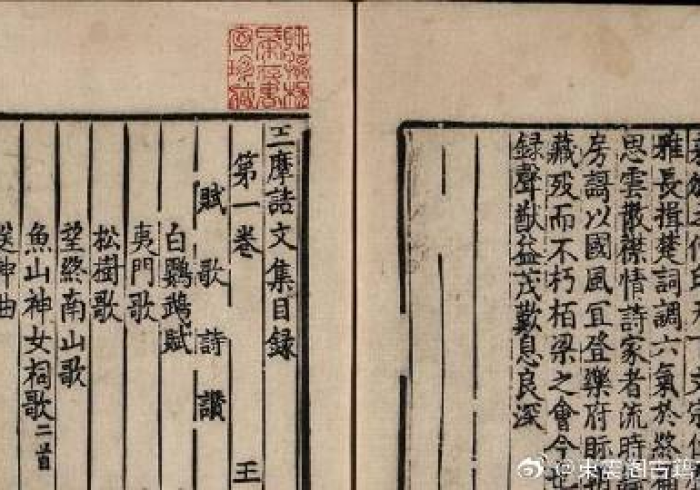 宋存書
室珍藏
雅長揖楚詞調六氣於終
思雲散襟情詩家者流時
房謌以國風宜登樂府旰
藏歿而不朽柏梁之會今也
録聲猷益茂歎息良深
王摩詰文集目録
第一卷 王
賦 歌 詩 讚
白鸚鵡賦
夷門歌
松樹歌
望終南山歌
魚山神女祠歌二首
神曲
@東雲閣古籍